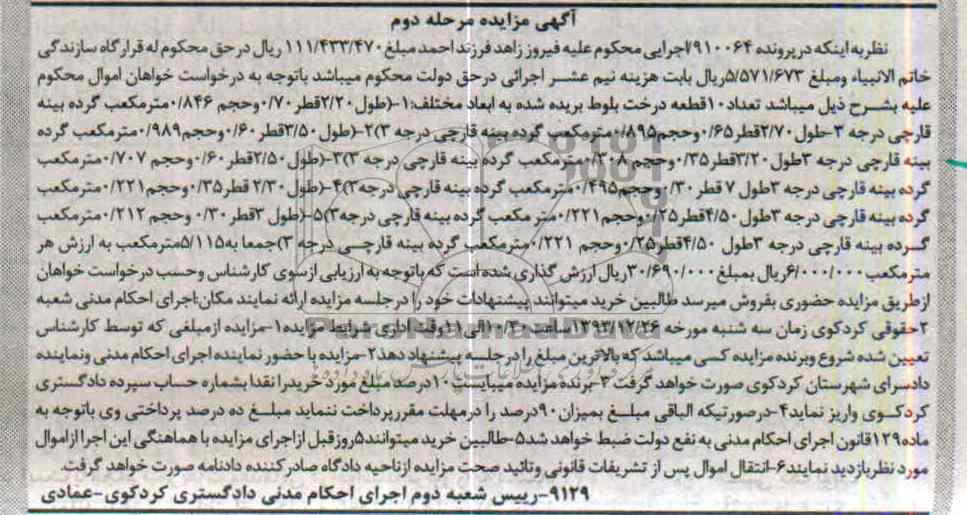 آگهی مزایده مرحله دوم
نظر به اینکه در پرونده ۹۱۰۰۶۴/اجرایی محکوم علیه فیروز زاهد فرزند احمد مبلغ ۱۱۱/۴۳۳/۴۷۰ ریال در حق محکوم له قرارگاه سازندگی
خاتم الانبیاء ومبلغ ۵/۵۷۱/۶۷۳ریال بابت هزینه نیم عشر اجرائی درحق دولت محکوم میباشد باتوجه به درخواست خواهان اموال محکوم
علیه بشرح ذیل میباشد تعداد۱۰قطعه درخت بلوط بریده شده به ابعاد مختلف:۱-(طول۲/۲۰قطر۰/۷۰وحجم ۰/۸۴۶مترمکعب گرده بینه
قارچی درجه ۳-طول۲/۷۰قطر۰/۶۵وحجم۰/۸۹۵مترمکعب گرده بینه قارچی درجه ۳)۲-(طول۳/۵۰قطر۰/۶۰وحجم۰/۹۸۹مترمکعب گرده
بینه قارچی درجه ۳طول۳/۲۰قطر۰/۳۵وحجم ۰/۳۰۸مترمکعب گرده بینه قارچی درجه ۳)۳-(طول۲/۵۰قطر۰/۶۰وحجم ۰/۷۰۷مترمکعب
گرده بینه قارچی درجه ۳طول ۷ قطر۰/۳۰وحجم۰/۴۹۵مترمکعب گرده بینه قارچی درجه۳)۴-(طول۲/۳۰ قطر۰/۳۵وحجم۰/۲۲۱مترمکعب
گرده بینه قارچی درجه ۳طول۴/۵۰قطر۰/۲۵وحجم۰/۲۲۱متر مکعب گرده بینه قارچی درجه۳)۵-(طول ۳قطر۰/۳۰ وحجم ۰/۲۱۲مترمکعب
گرده بینه قارچی درجه ۳طول ۴/۵۰قطر۰/۲۵وحجم ۰/۲۲۱مترمکعب گرده بینه قارچی درجه ۳)جمعا به۵/۱۱۵مترمکعب به ارزش هر
مترمکعب ۶/۰۰۰/۰۰۰ریال بمبلغ ۳۰/۶۹۰/۰۰۰ریال ارزش گذاری شده است که باتوجه به ارزیابی ازسوی کارشناس وحسب درخواست خواهان
ازطریق مزایده حضوری بفروش میرسد طالبین خرید میتوانند پیشنهادات خود را درجلسه مزایده ارائه نمایند مکان:اجرای احکام مدنی شعبه
۲حقوقی کردکوی زمان سه شنبه مورخه ۱۳۹۳/۱۲/۲۶ساعت ۱۰/۳۰الی۱۱وقت اداری شرایط مزایده۱-مزایده ازمبلغی که توسط کارشناس
تعیین شده شروع وبرنده مزایده کسی میباشد که بالاترین مبلغ را درجلسه پیشنهاد دهد۲-مزایده با حضور نماینده اجرای احکام مدنی ونماینده
دادسرای شهرستان کردکوی صورت خواهد گرفت۳-برنده مزایده میبایست۱۰درصد مبلغ مورد خریدرا نقدا بشماره حساب سپرده دادگستری
کردکوی واریز نماید۴-درصورتیکه الباقی مبلغ بمیزان۹۰درصد را درمهلت مقررپرداخت ننماید مبلغ ده درصد پرداختی وی باتوجه به
ماده۱۲۹قانون اجرای احکام مدنی به نفع دولت ضبط خواهد شد۵-طالبین خرید میتوانند۵روزقبل ازاجرای مزایده با هماهنگی این اجرا ازاموال
مورد نظربازدید نمایند۶-انتقال اموال پس از تشریفات قانونی وتائید صحت مزایده ازناحیه دادگاه صادرکننده دادنامه صورت خواهد گرفت.
۹۱۲۹-رییس شعبه دوم اجرای احکام مدنی دادگستری کردکوی-عمادی
ParsNamadData